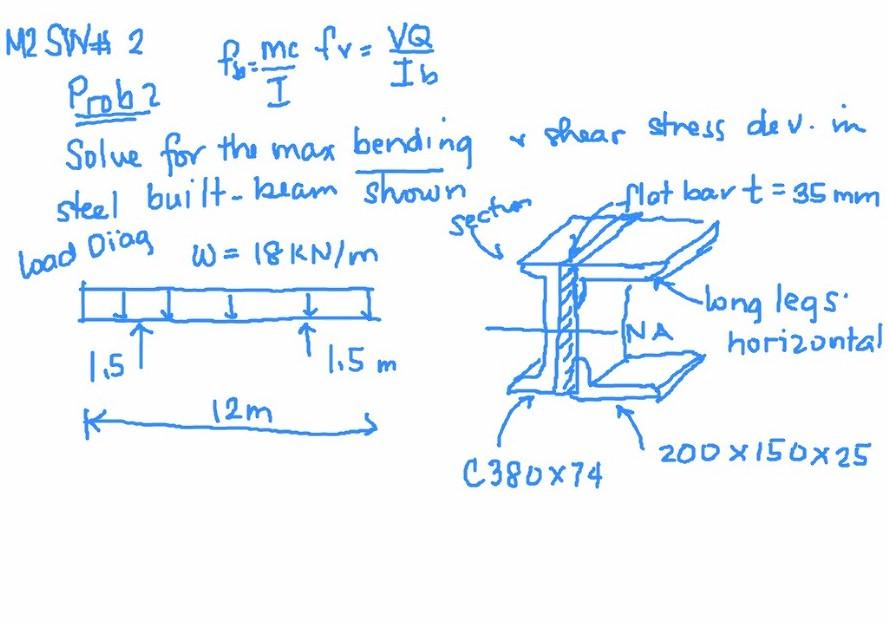 M2 SW# 2
fb = mc/I fv = VQ/Ib
Prob 2
Solve for the max bending & shear stress dev. in
steel built-beam shown
Load Diag
W = 18 KN/m
1.5
1.5 m
12m
section
flat bar t = 35 mm
long legs
horizontal
NA
C380 x 74
200 x 150 x 25